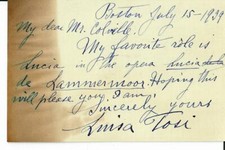 Boston July 15-1939
My dear Mr. Colville.
My favorite role is
Lucia in the opera Lucia
de Lammermoor. Hoping this
will please you, I am,
Sincerely yours
Luisa Tosi